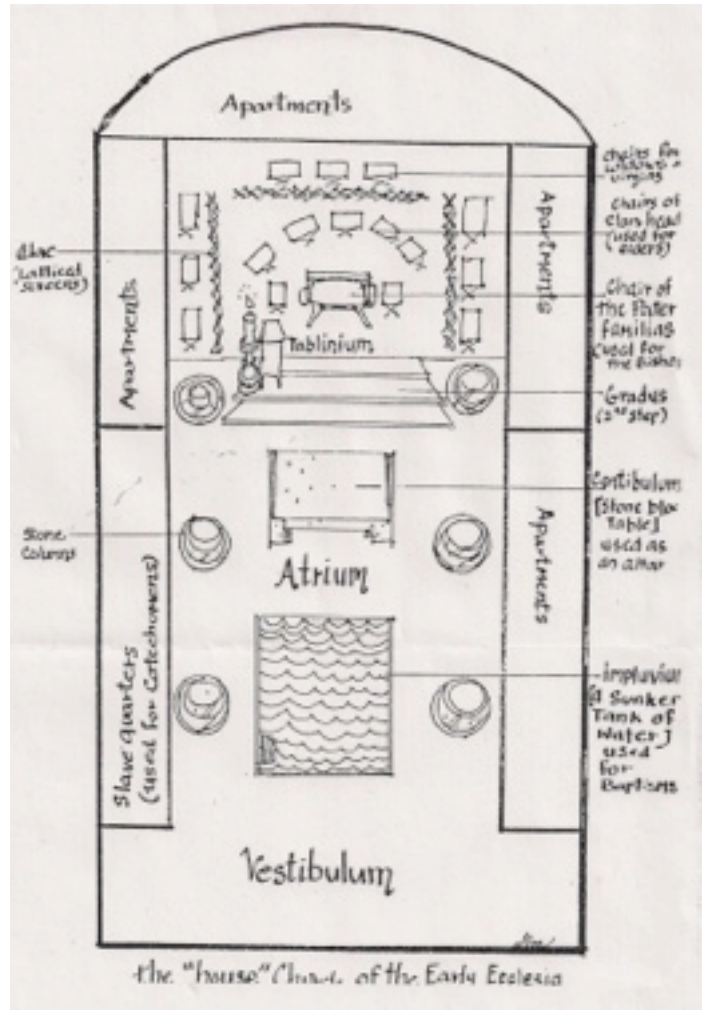 Apartments
chairs for
widows +
virgins
chairs of
clan head
(used for
elders)
Alae
Apartments
Apartments
Chair of
the Pater
familias
(used for
the Bishop
Tablinium
Gradus
(2nd step)
[Stone block
Table]
used as
an altar
Apartments
Stone
Columns
Atrium
Slave Quarters
(used for Catechumens)
impluvium
[a Sunken
Tank of
Water]
used
for
Baptisms
Vestibulum
the "house" Church of the Early Ecclesia